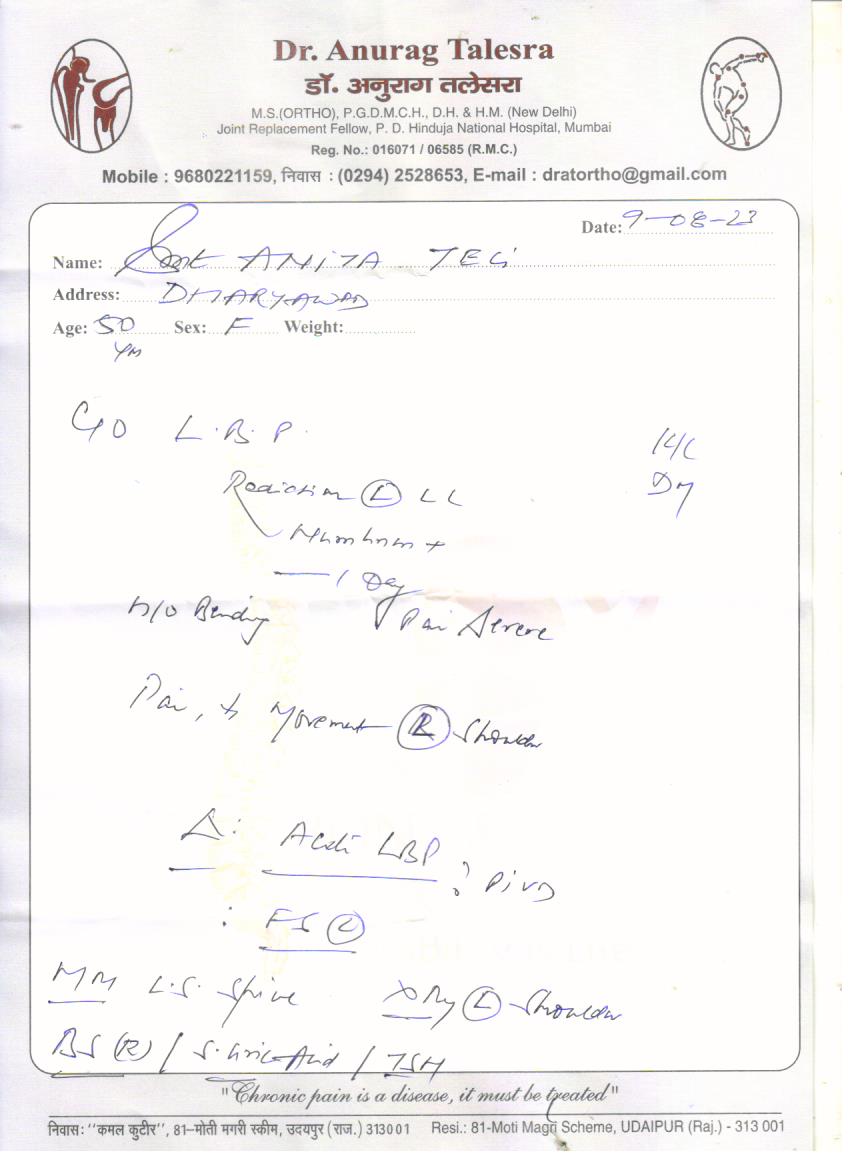 Dr. Anurag Talesra
डॉ. अनुराग तलेसरा
M.S.(ORTHO), P.G.D.M.C.H., D.H. & H.M. (New Delhi)
Joint Replacement Fellow, P. D. Hinduja National Hospital, Mumbai
Reg. No.: 016071 / 06585 (R.M.C.)
Mobile : 9680221159, निवास : (0294) 2528653, E-mail : dratortho@gmail.com
Date: 9-08-23
Name: Smt ANITA TELI
Address: DHARYAWAD
Age: 50 Sex: F Weight:
Yrs
C/O L.B.P.
K/C
DM
Radiation Ⓛ LL
Numbness +
1 Day
H/O Bending Pain Severe
Pain, Movement Ⓡ Shoulder
Δ: LBP ? PIVD
: FS Ⓛ
L.S. Spine X Ray Ⓛ Shoulder
BS (R) / S. Uric Acid / TSH
"Chronic pain is a disease, it must be treated"
निवास: ''कमल कुटीर'', 81–मोती मगरी स्कीम, उदयपुर (राज.) 313001 Resi.: 81-Moti Magri Scheme, UDAIPUR (Raj.) - 313 001